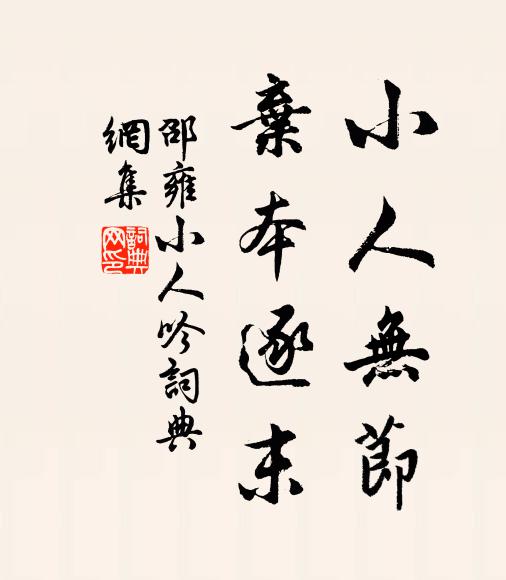 小人無節
棄本逐末
邵雍小人吟詞典
網集
詞典
网印